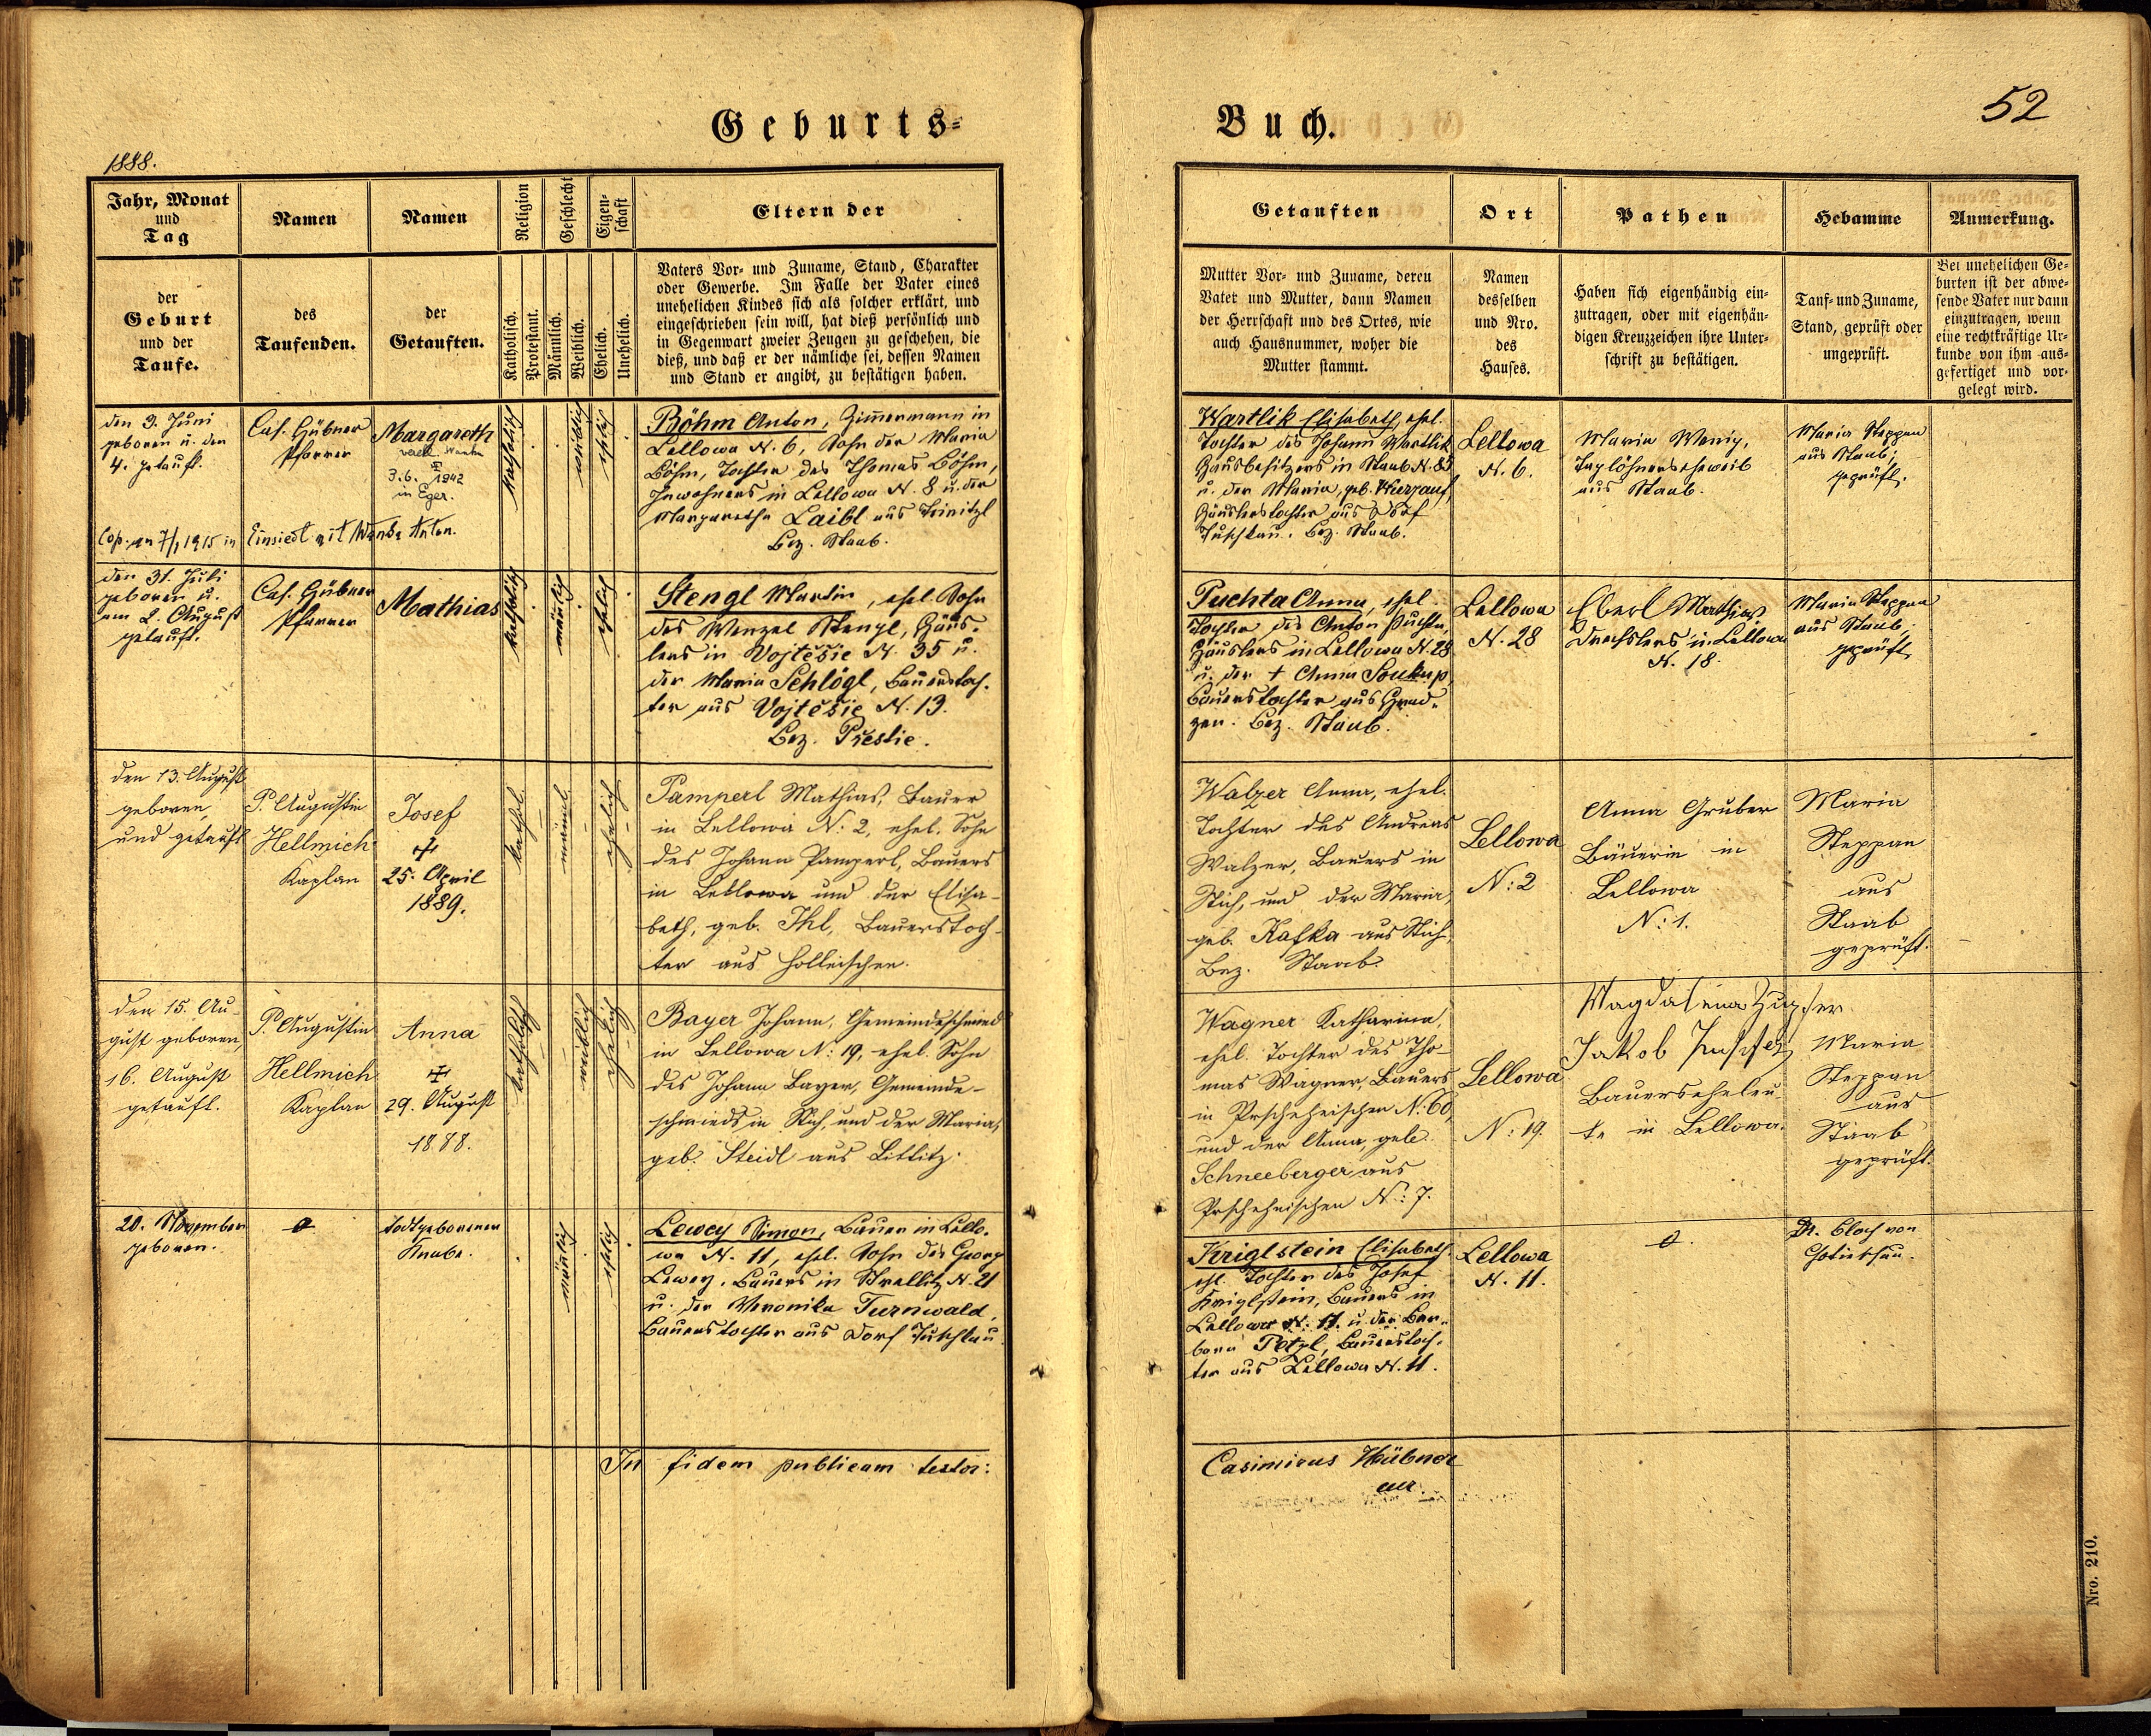 Geburts=
Buch.
52
1888.
Jahr, Monat
und
Tag
Namen
Namen
Religion
Geschlecht
Eigen-
schaft
Eltern der
der
Geburt
und der
Taufe.
des
Taufenden.
der
Getauften.
Katholisch.
Protestant.
Männlich.
Weiblich.
Ehelich.
Unehelich.
Vaters Vor- und Zuname, Stand, Charakter
oder Gewerbe. Im Falle der Vater eines
unehelichen Kindes sich als solcher erklärt, und
eingeschrieben sein will, hat dieß persönlich und
in Gegenwart zweier Zeugen zu geschehen, die
dieß, und daß er der nämliche sei, dessen Namen
und Stand er angibt, zu bestätigen haben.
Getauften
Ort
Pathen
Hebamme
Anmerkung.
Mutter Vor- und Zuname, deren
Vater und Mutter, dann Namen
der Herrschaft und des Ortes, wie
auch Hausnummer, woher die
Mutter stammt.
Namen
desselben
und Nro.
des
Hauses.
Haben sich eigenhändig ein-
zutragen, oder mit eigenhän-
digen Kreuzzeichen ihre Unter-
schrift zu bestätigen.
Tauf- und Zuname,
Stand, geprüft oder
ungeprüft.
Bei unehelichen Ge-
burten ist der abwe-
sende Vater nur dann
einzutragen, wenn
eine rechtkräftige Ur-
kunde von ihm aus-
gefertiget und vor-
gelegt wird.
den 3. Juni
geboren u. den
4. getauft.
Cas. Hübner
Pfarrer
Margareth
3.6. 1942
in Eger.
Cop. am 7/1 1915 in Einsiedl mit Anton.
katholisch
weiblich
ehelich
Böhm Anton, Zimmermann in
Lellowa N. 6, Sohn der Maria
Böhm, Tochter des Thomas Böhm,
Inwohners in Lellowa N. 8 u. der
Margaretha Laibl aus Trinitzl
Bez. Staab.
Wartlik Elisabeth, ehel.
Tochter des Johann Wartlik
Hausbesitzers in Staab N. 85
u. der Maria, geb. Kurzauf,
Häuslerstochter aus Dorf
Tuschkau. Bez. Staab.
Lellowa
N. 6.
Maria Wenig,
Taglöhnerseheweib
aus Staab.
Maria Steppan
aus Staab;
geprüft.
den 31. Juli
geboren u.
am 2. August
getauft.
Cas. Hübner
Pfarrer
Mathias
katholisch
männlich
ehelich
Stengl Martin, ehel. Sohn
des Wenzel Stengl, Häus-
lers in Vojtěšic N. 35 u.
der Maria Schlögl, Bauerstoch-
ter aus Vojtěšic N. 13.
Bez. Přestic.
Puchta Anna, ehel.
Tochter des Anton Puchta,
Häuslers in Lellowa N. 28
u. der † Anna Soukup,
Bauerstochter aus Grad-
zen. Bez. Staab.
Lellowa
N. 28
Eberl Mathias
Drechslers in Lellowa
N. 18.
Maria Steppan
aus Staab
geprüft
den 13. August
geboren,
und getauft
P. Augustin
Hellmich
Kaplan
Josef
25. April
1889.
kathol.
männl.
ehelich
Pamperl Mathias, Bauer
in Lellowa N: 2, ehel. Sohn
des Johann Pamperl, Bauers
in Lellowa und der Elisa-
beth, geb. Ihl, Bauerstoch-
ter aus Holleischen.
Walzer Anna, ehel.
Tochter des Andreas
Walzer, Bauers in
Stich, und der Maria,
geb. Kafka aus Stich,
Bez. Staab.
Lellowa
N: 2
Anna Gruber
Bäuerin in
Lellowa
N: 1.
Maria
Steppan
aus
Staab
geprüft.
den 15. Au-
gust geboren,
16. August
getauft.
P. Augustin
Hellmich
Kaplan
Anna
29. August
1888.
katholisch
weiblich
ehelich
Bayer Johann, Gemeindeschmied
in Lellowa N: 19, ehel. Sohn
des Johann Bayer, Gemeinde-
schmieds in Stich, und der Maria,
geb. Steidl aus Littitz.
Wagner Katharina,
ehel. Tochter des Tho-
mas Wagner, Bauers
in Prscheheischen N: 60,
und der Anna, geb.
Schneeberger aus
Prscheheischen N: 7.
Lellowa
N: 19.
Magdalena Zupfer
Jakob
Bauerseheleu-
te in Lellowa.
Maria
Steppan
aus
Staab
geprüft.
20. November
geboren.
Todtgeborener
Knabe.
männlich
ehelich
Lewey Simon, Bauer in Lello-
wa N. 11, ehel. Sohn des Georg
Lewey, Bauers in Strellitz N. 21
u. der Veronika Turnwald,
Bauerstochter aus Dorf Tuschkau
Kriglstein Elisabeth
ehl. Tochter des Josef
Kriglstein, Bauers in
Lellowa N. 11. u. der Bar-
bara Petzl, Bauerstoch-
ter aus Lellowa N. 11.
Lellowa
N. 11.
Dr. Bloch von
Chotieschau.
In fidem publicam testor:
Casimirus Hübner
Nro. 210.